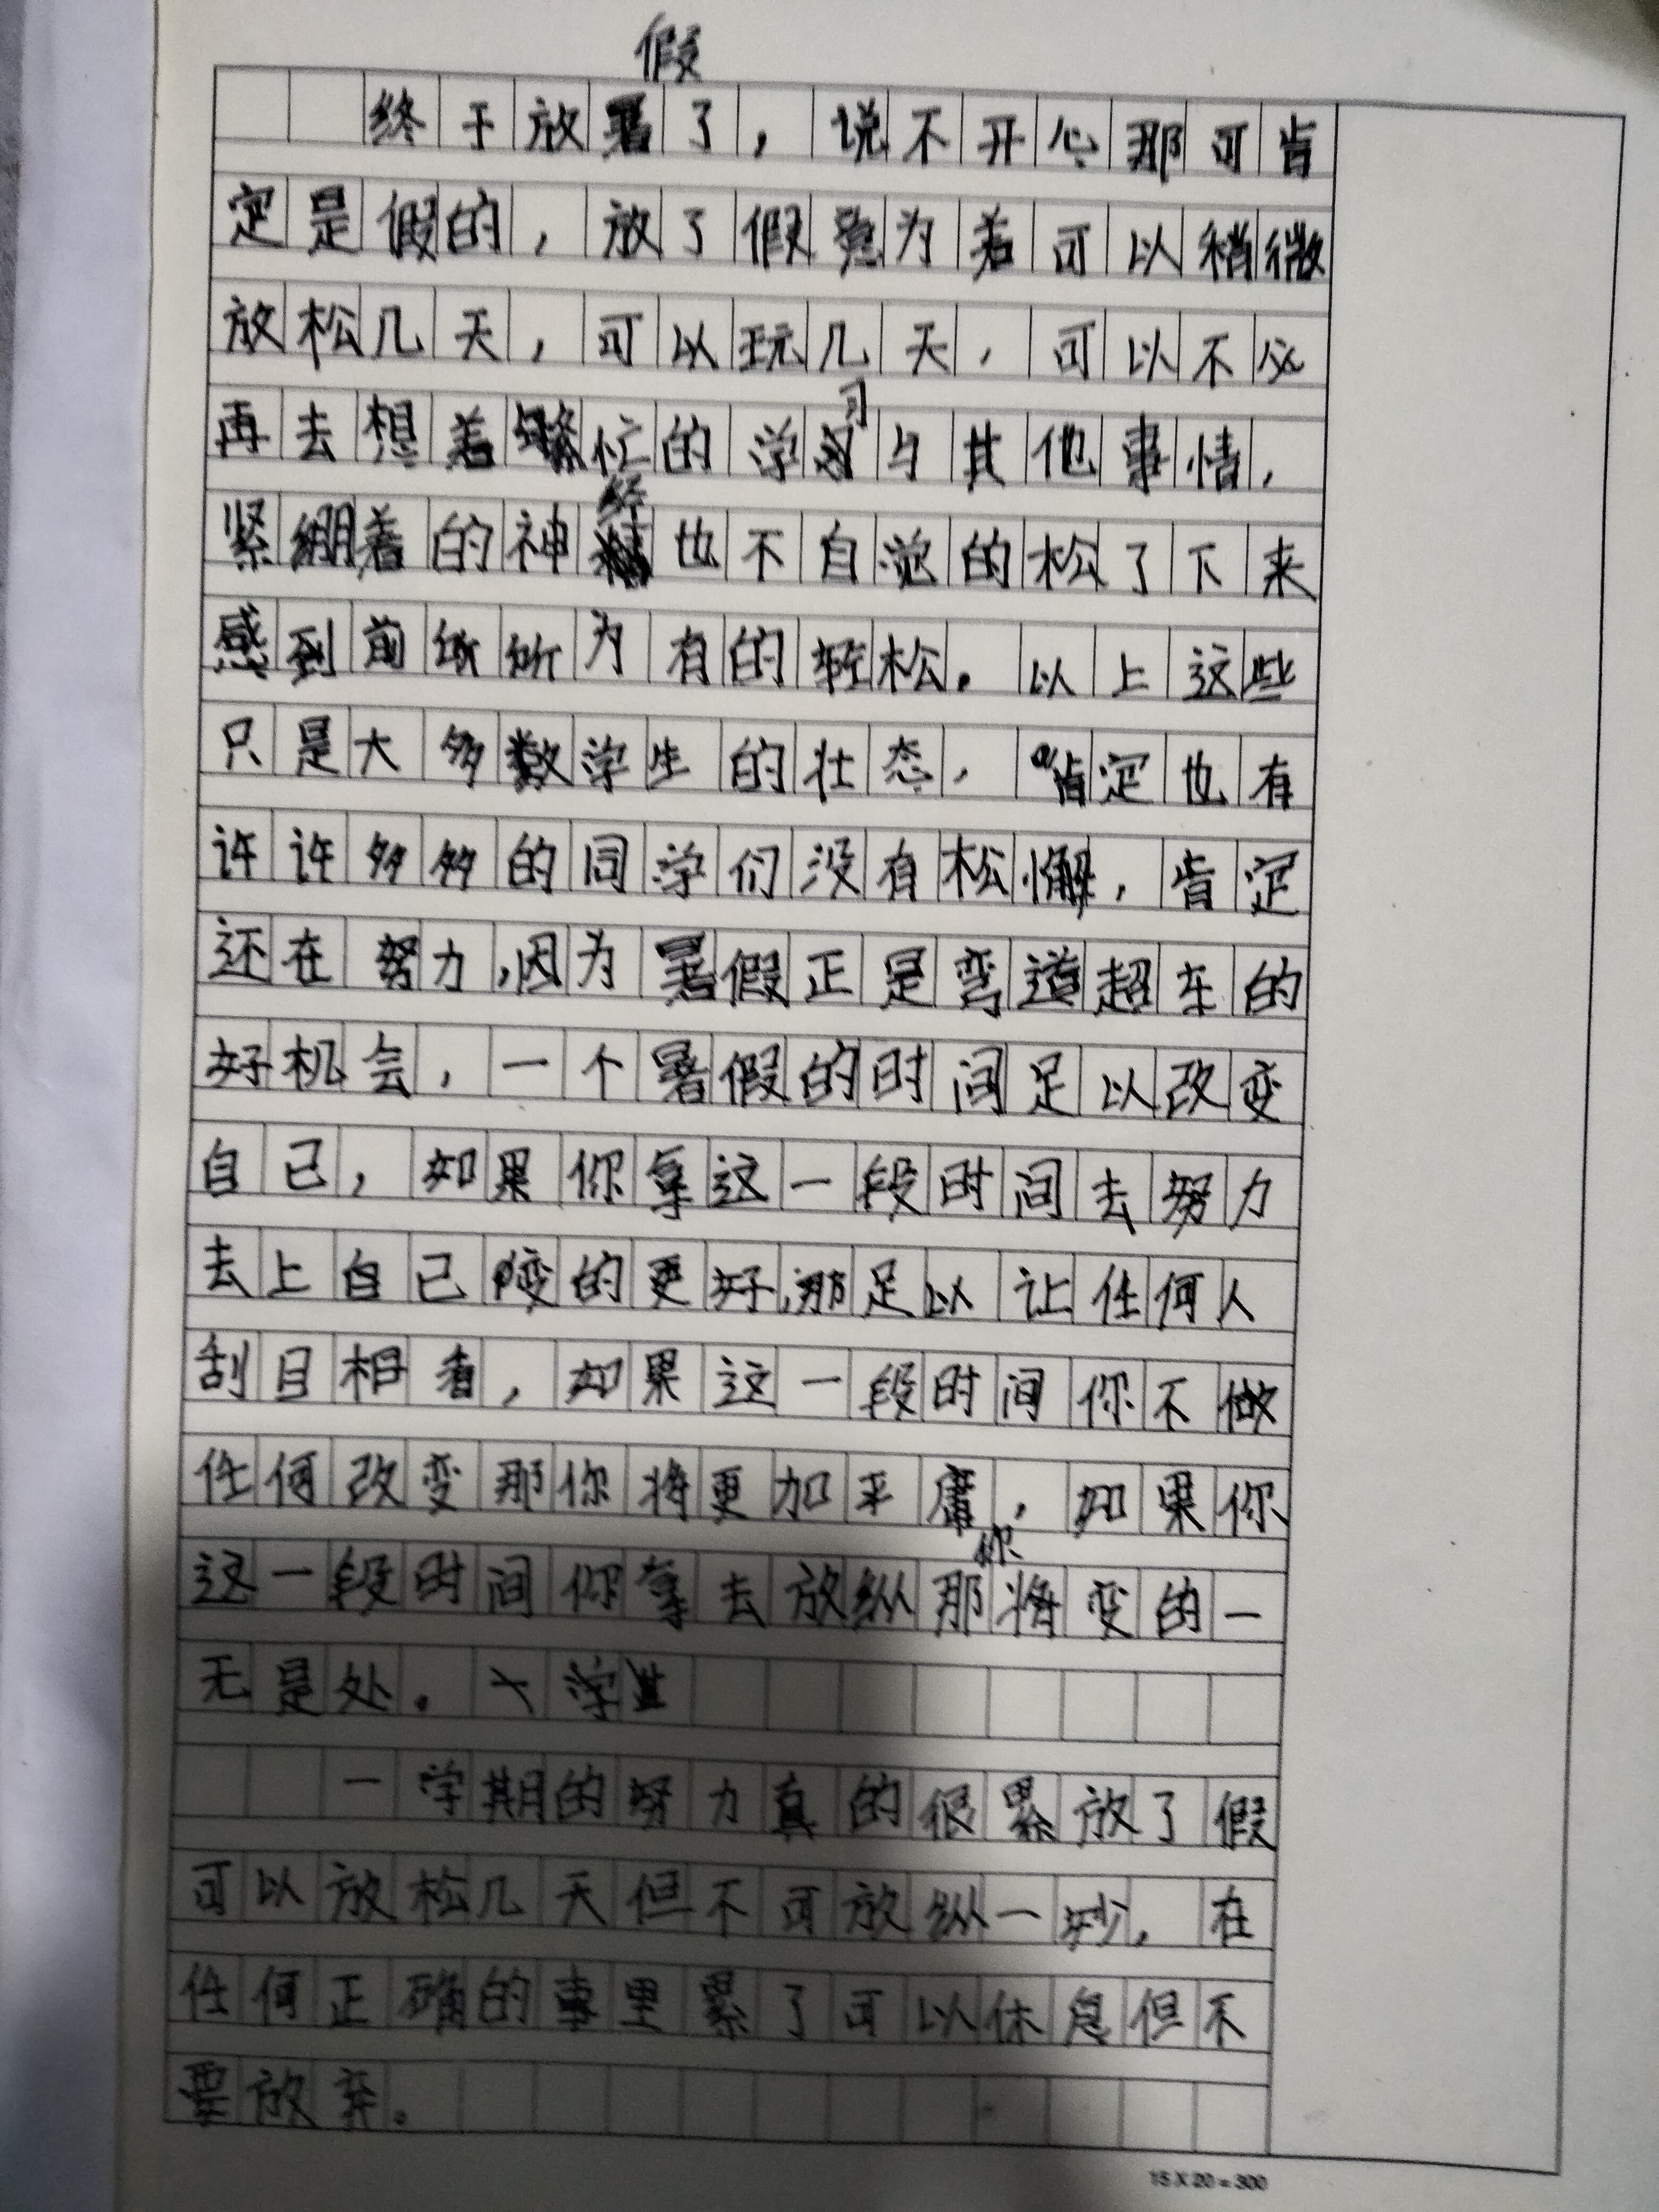 终于放假了，说不开心那可肯
定是假的，放了假意为着可以稍微
放松几天，可以玩几天，可以不必
再去想着繁忙的学习与其他事情，
紧绷着的神经也不自觉的松了下来
感到前所为有的轻松。以上这些
只是大多数学生的壮态，肯定也有
许许多多的同学们没有松懈，肯定
还在努力，因为暑假正是弯道超车的
好机会，一个暑假的时间足以改变
自己，如果你拿这一段时间去努力
去上自己变的更好，那足以让任何人
刮目相看，如果这一段时间你不做
任何改变那你将更加平庸，如果你
这一段时间你拿去放纵那你将变的一
无是处。
一学期的努力真的很累放了假
可以放松几天但不可放纵一妙，在
任何正确的事里累了可以休息但不
要放弃。
15X20=300